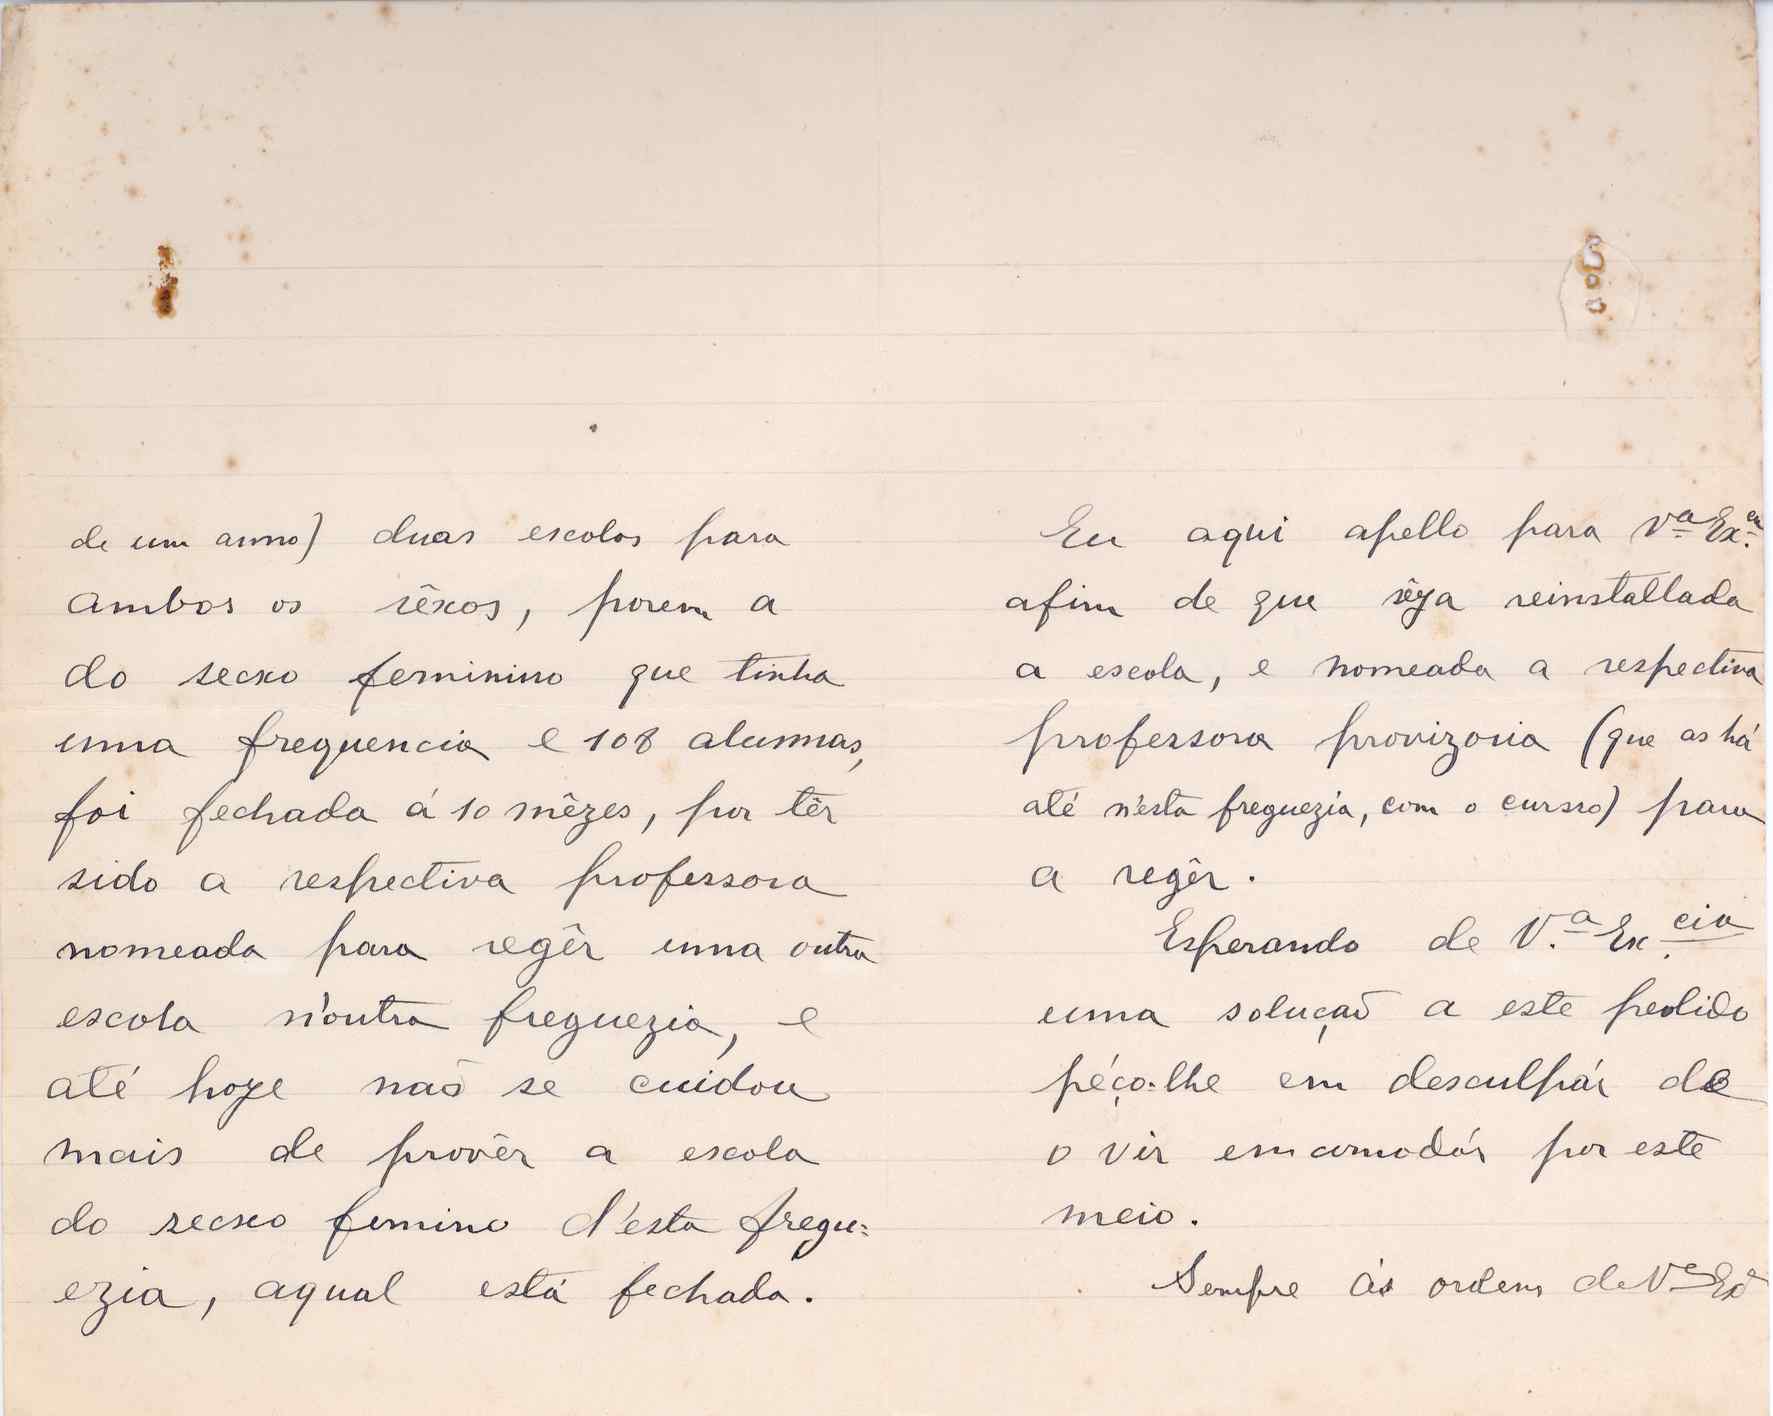 de um anno) duas escolas para
ambos os sêxos, porem a
do secxo feminino que tinha
uma frequencia e 108 alumnas,
foi fechada á 10 mêzes, por têr
sido a respectiva professora
nomeada para regêr uma outra
escola n'outra freguezia, e
até hoje naõ se cuidou
mais de provêr a escola
do secxo femino d'esta fregu=
ezia, aqual está fechada.
Eu aqui apello para Vª Ex.cia
afim de que sêja reinstallada
a escola, e nomeada a respectiva
professora provizoria (que as há
até n'esta freguezia, com o curso) para
a regêr.
Esperando de V.ª Ex.cia
uma soluçaõ a este pedido
péço-lhe em desculpár de
o vir emcomodár por este
meio.
Sempre ás ordens de Vª Exª